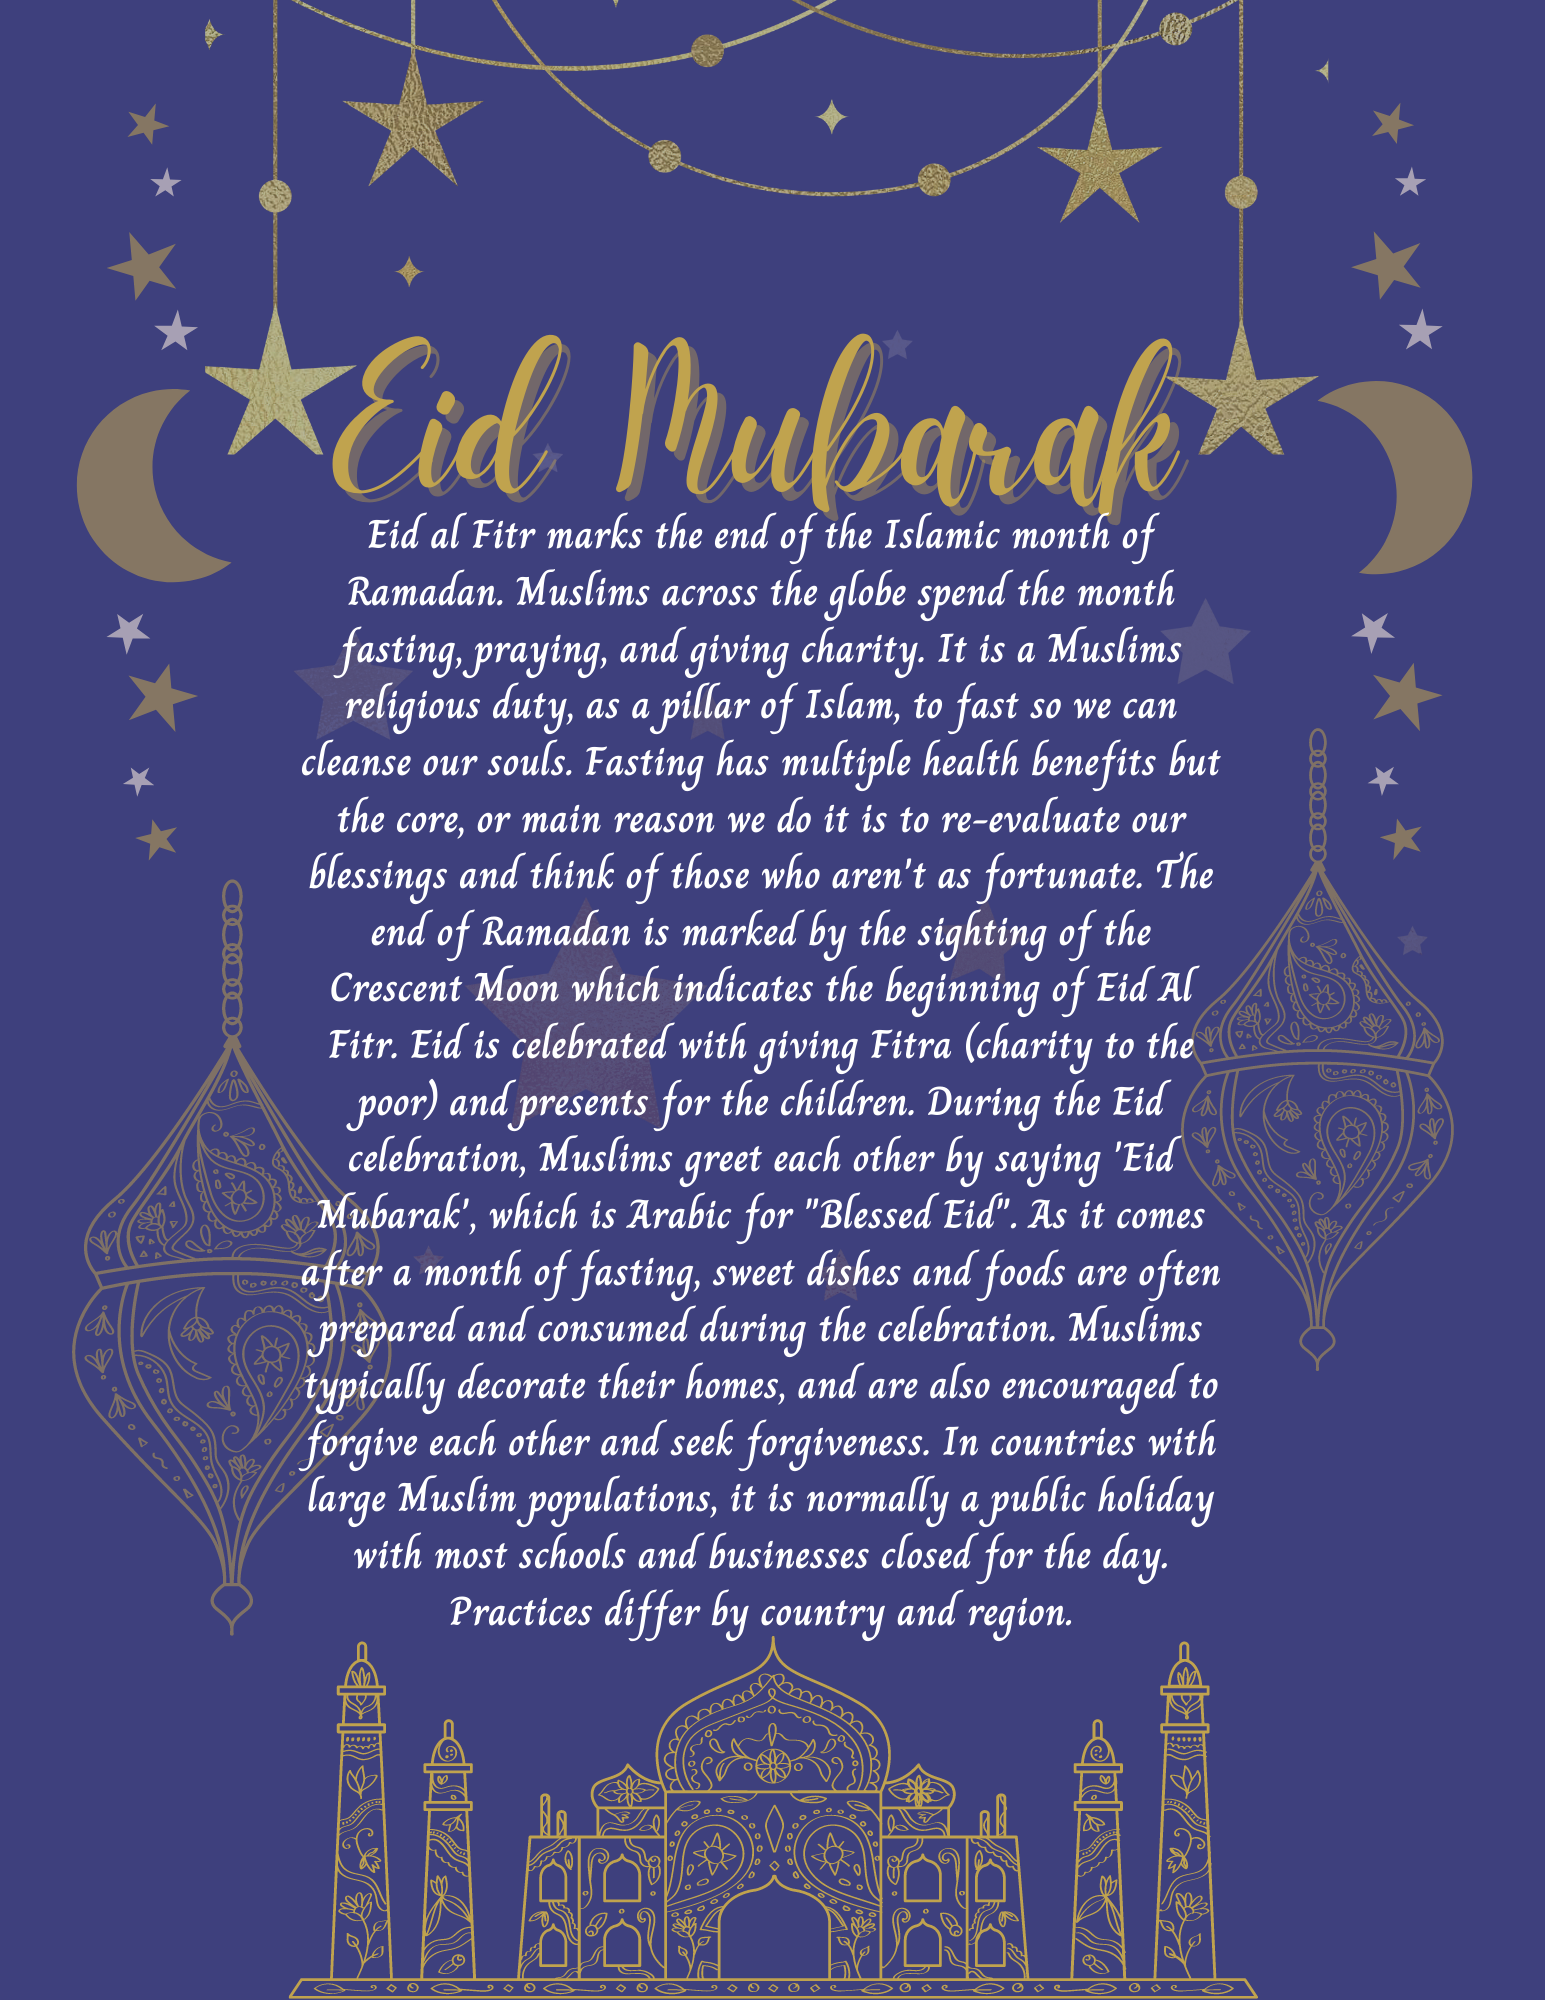 Eid Mubarak
Eid al Fitr marks the end of the Islamic month of
Ramadan. Muslims across the globe spend the month
fasting, praying, and giving charity. It is a Muslims
religious duty, as a pillar of Islam, to fast so we can
cleanse our souls. Fasting has multiple health benefits but
the core, or main reason we do it is to re-evaluate our
blessings and think of those who aren't as fortunate. The
end of Ramadan is marked by the sighting of the
Crescent Moon which indicates the beginning of Eid Al
Fitr. Eid is celebrated with giving Fitra (charity to the
poor) and presents for the children. During the Eid
celebration, Muslims greet each other by saying 'Eid
Mubarak', which is Arabic for "Blessed Eid". As it comes
after a month of fasting, sweet dishes and foods are often
prepared and consumed during the celebration. Muslims
typically decorate their homes, and are also encouraged to
forgive each other and seek forgiveness. In countries with
large Muslim populations, it is normally a public holiday
with most schools and businesses closed for the day.
Practices differ by country and region.